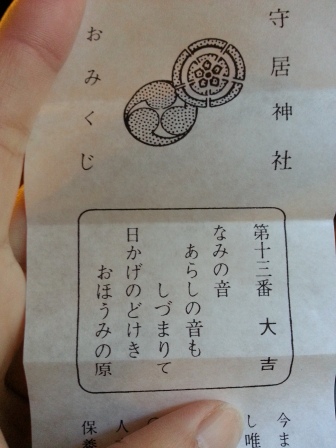 守居神社
おみくじ
第十三番 大吉
なみの音
あらしの音も
しづまりて
日かげのどけき
おほうみの原
今ま
し唯
人
保養